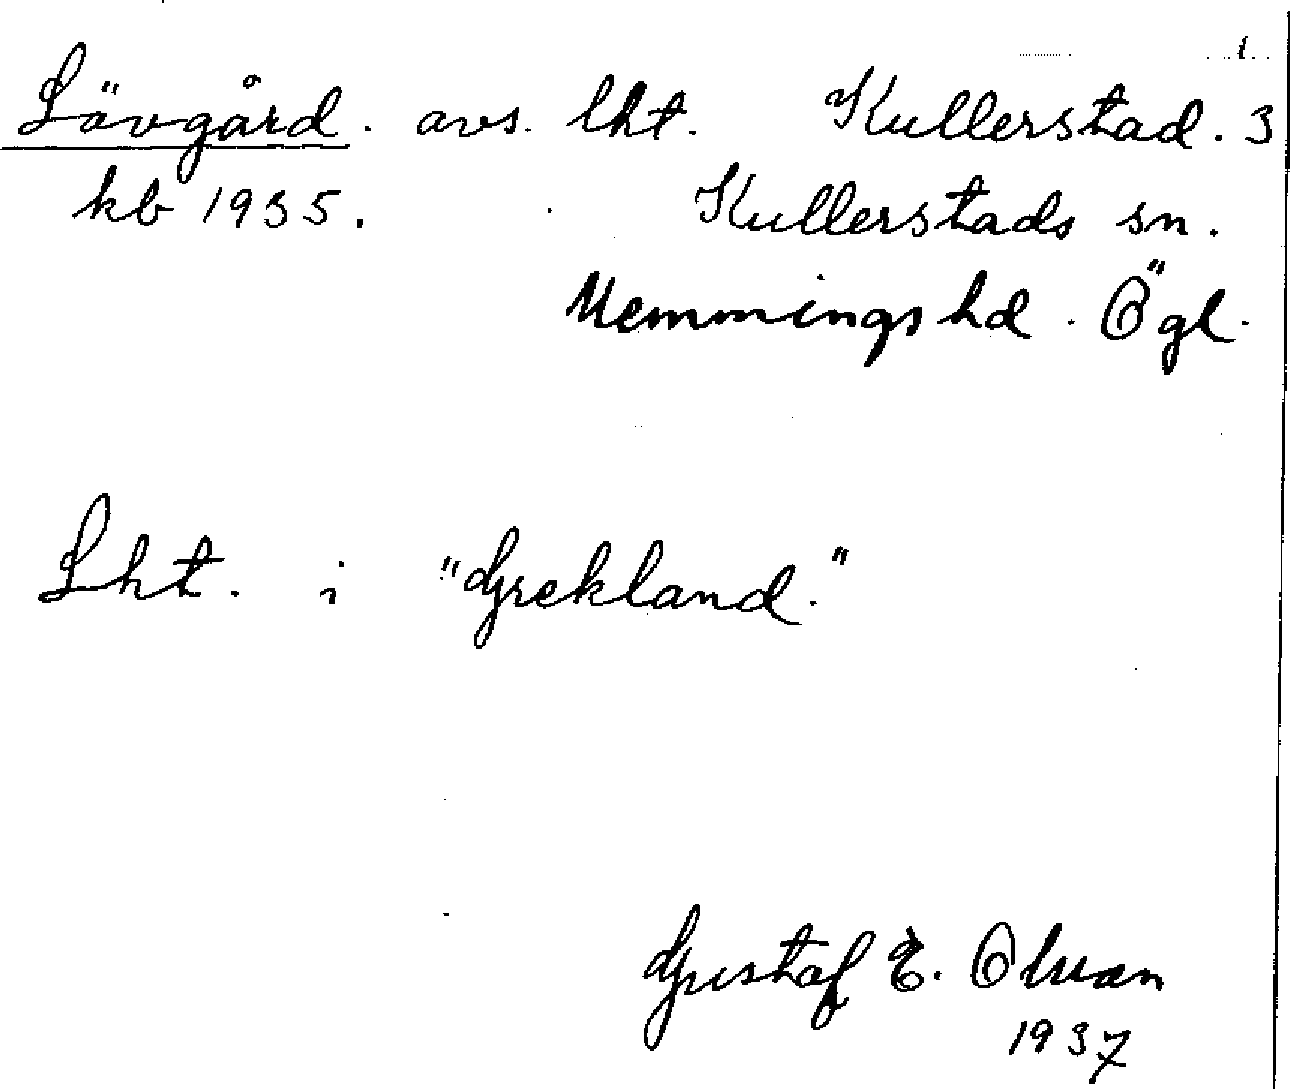 Lövgård. avs. lht. Kullerstad. 3
kb 1935. Kullerstads sn.
Memmings hd. Ögl.
Lht. i "Grekland."
Gustaf E. Olsson
1937